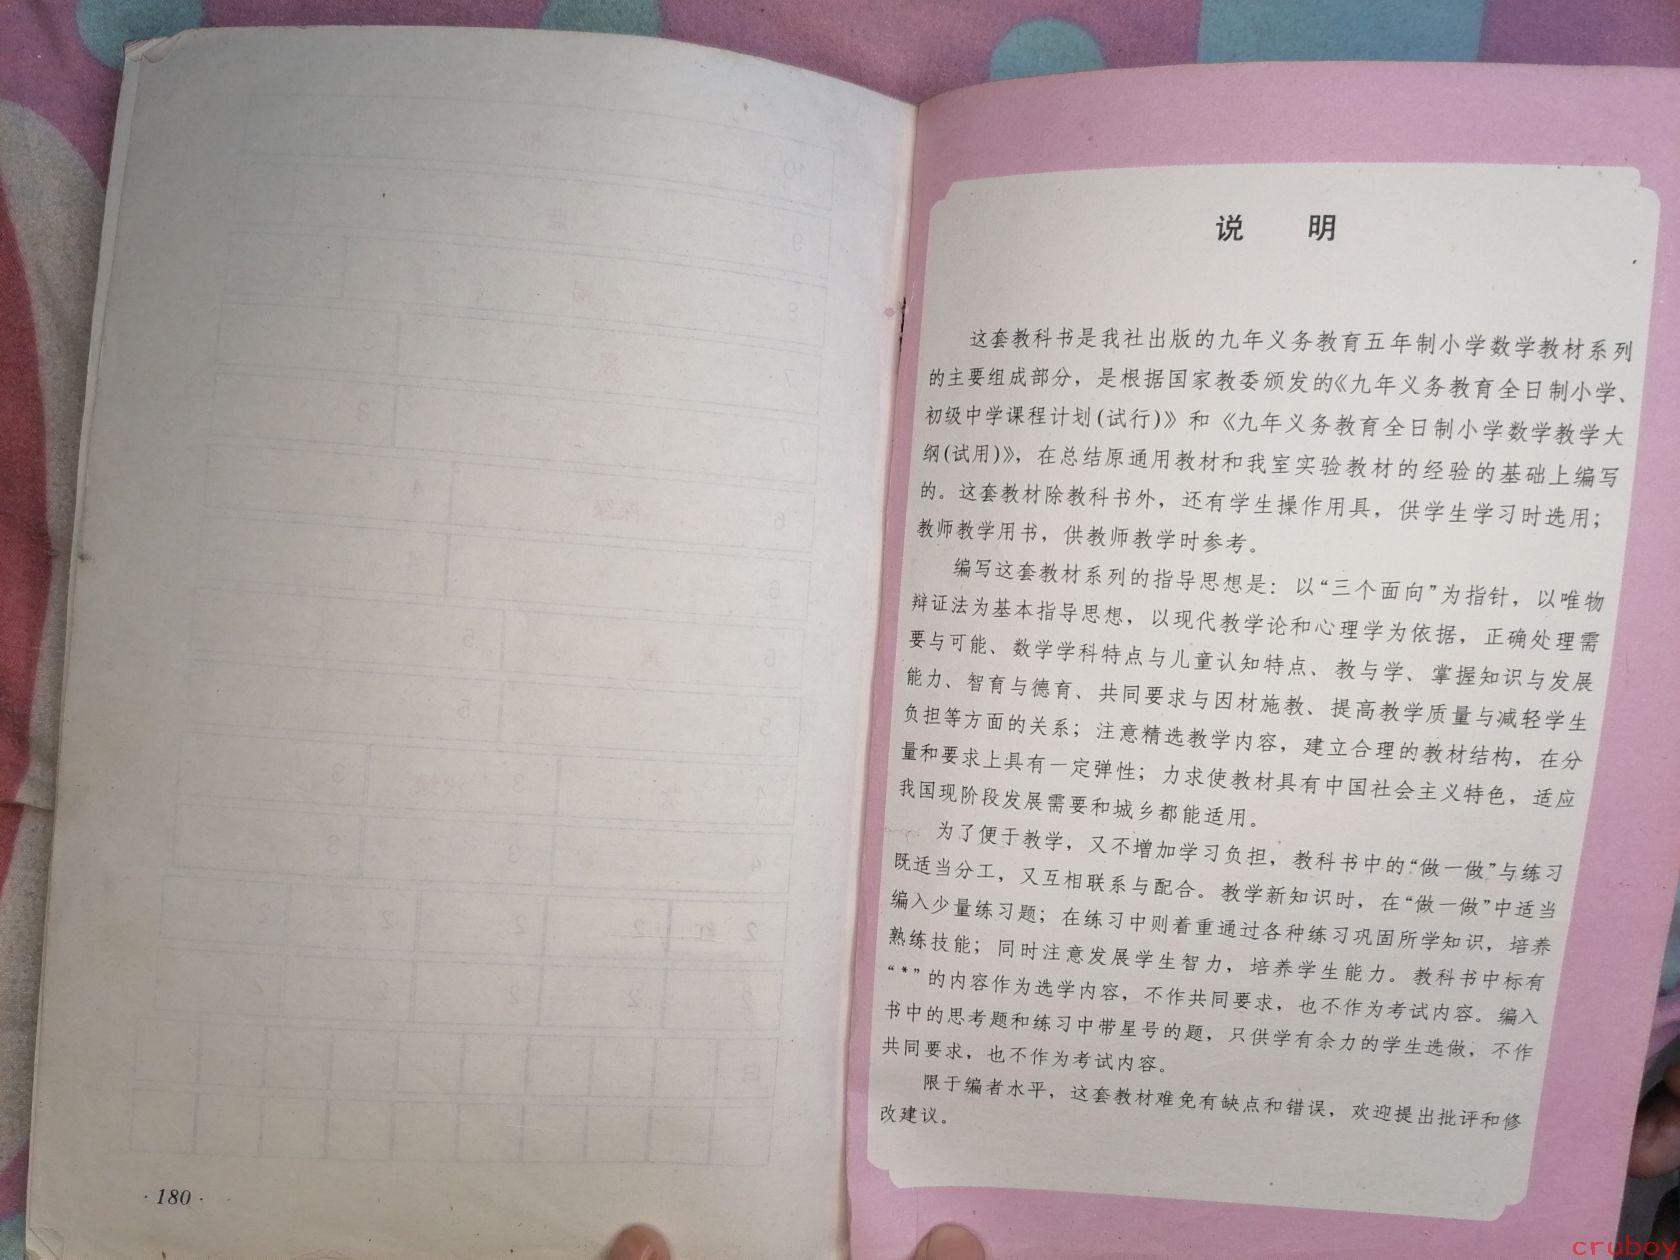 ·180·
说 明
这套教科书是我社出版的九年义务教育五年制小学数学教材系列
的主要组成部分，是根据国家教委颁发的《九年义务教育全日制小学、
初级中学课程计划(试行)》和《九年义务教育全日制小学数学教学大
纲(试用)》，在总结原通用教材和我室实验教材的经验的基础上编写
的。这套教材除教科书外，还有学生操作用具，供学生学习时选用；
教师教学用书，供教师教学时参考。
编写这套教材系列的指导思想是：以“三个面向”为指针，以唯物
辩证法为基本指导思想，以现代教学论和心理学为依据，正确处理需
要与可能、数学学科特点与儿童认知特点、教与学、掌握知识与发展
能力、智育与德育、共同要求与因材施教、提高教学质量与减轻学生
负担等方面的关系；注意精选教学内容，建立合理的教材结构，在分
量和要求上具有一定弹性；力求使教材具有中国社会主义特色，适应
我国现阶段发展需要和城乡都能适用。
为了便于教学，又不增加学习负担，教科书中的“做一做”与练习
既适当分工，又互相联系与配合。教学新知识时，在“做一做”中适当
编入少量练习题；在练习中则着重通过各种练习巩固所学知识，培养
熟练技能；同时注意发展学生智力，培养学生能力。教科书中标有
“*”的内容作为选学内容，不作共同要求，也不作为考试内容。编入
书中的思考题和练习中带星号的题，只供学有余力的学生选做，不作
共同要求，也不作为考试内容。
限于编者水平，这套教材难免有缺点和错误，欢迎提出批评和修
改建议。
cruboy